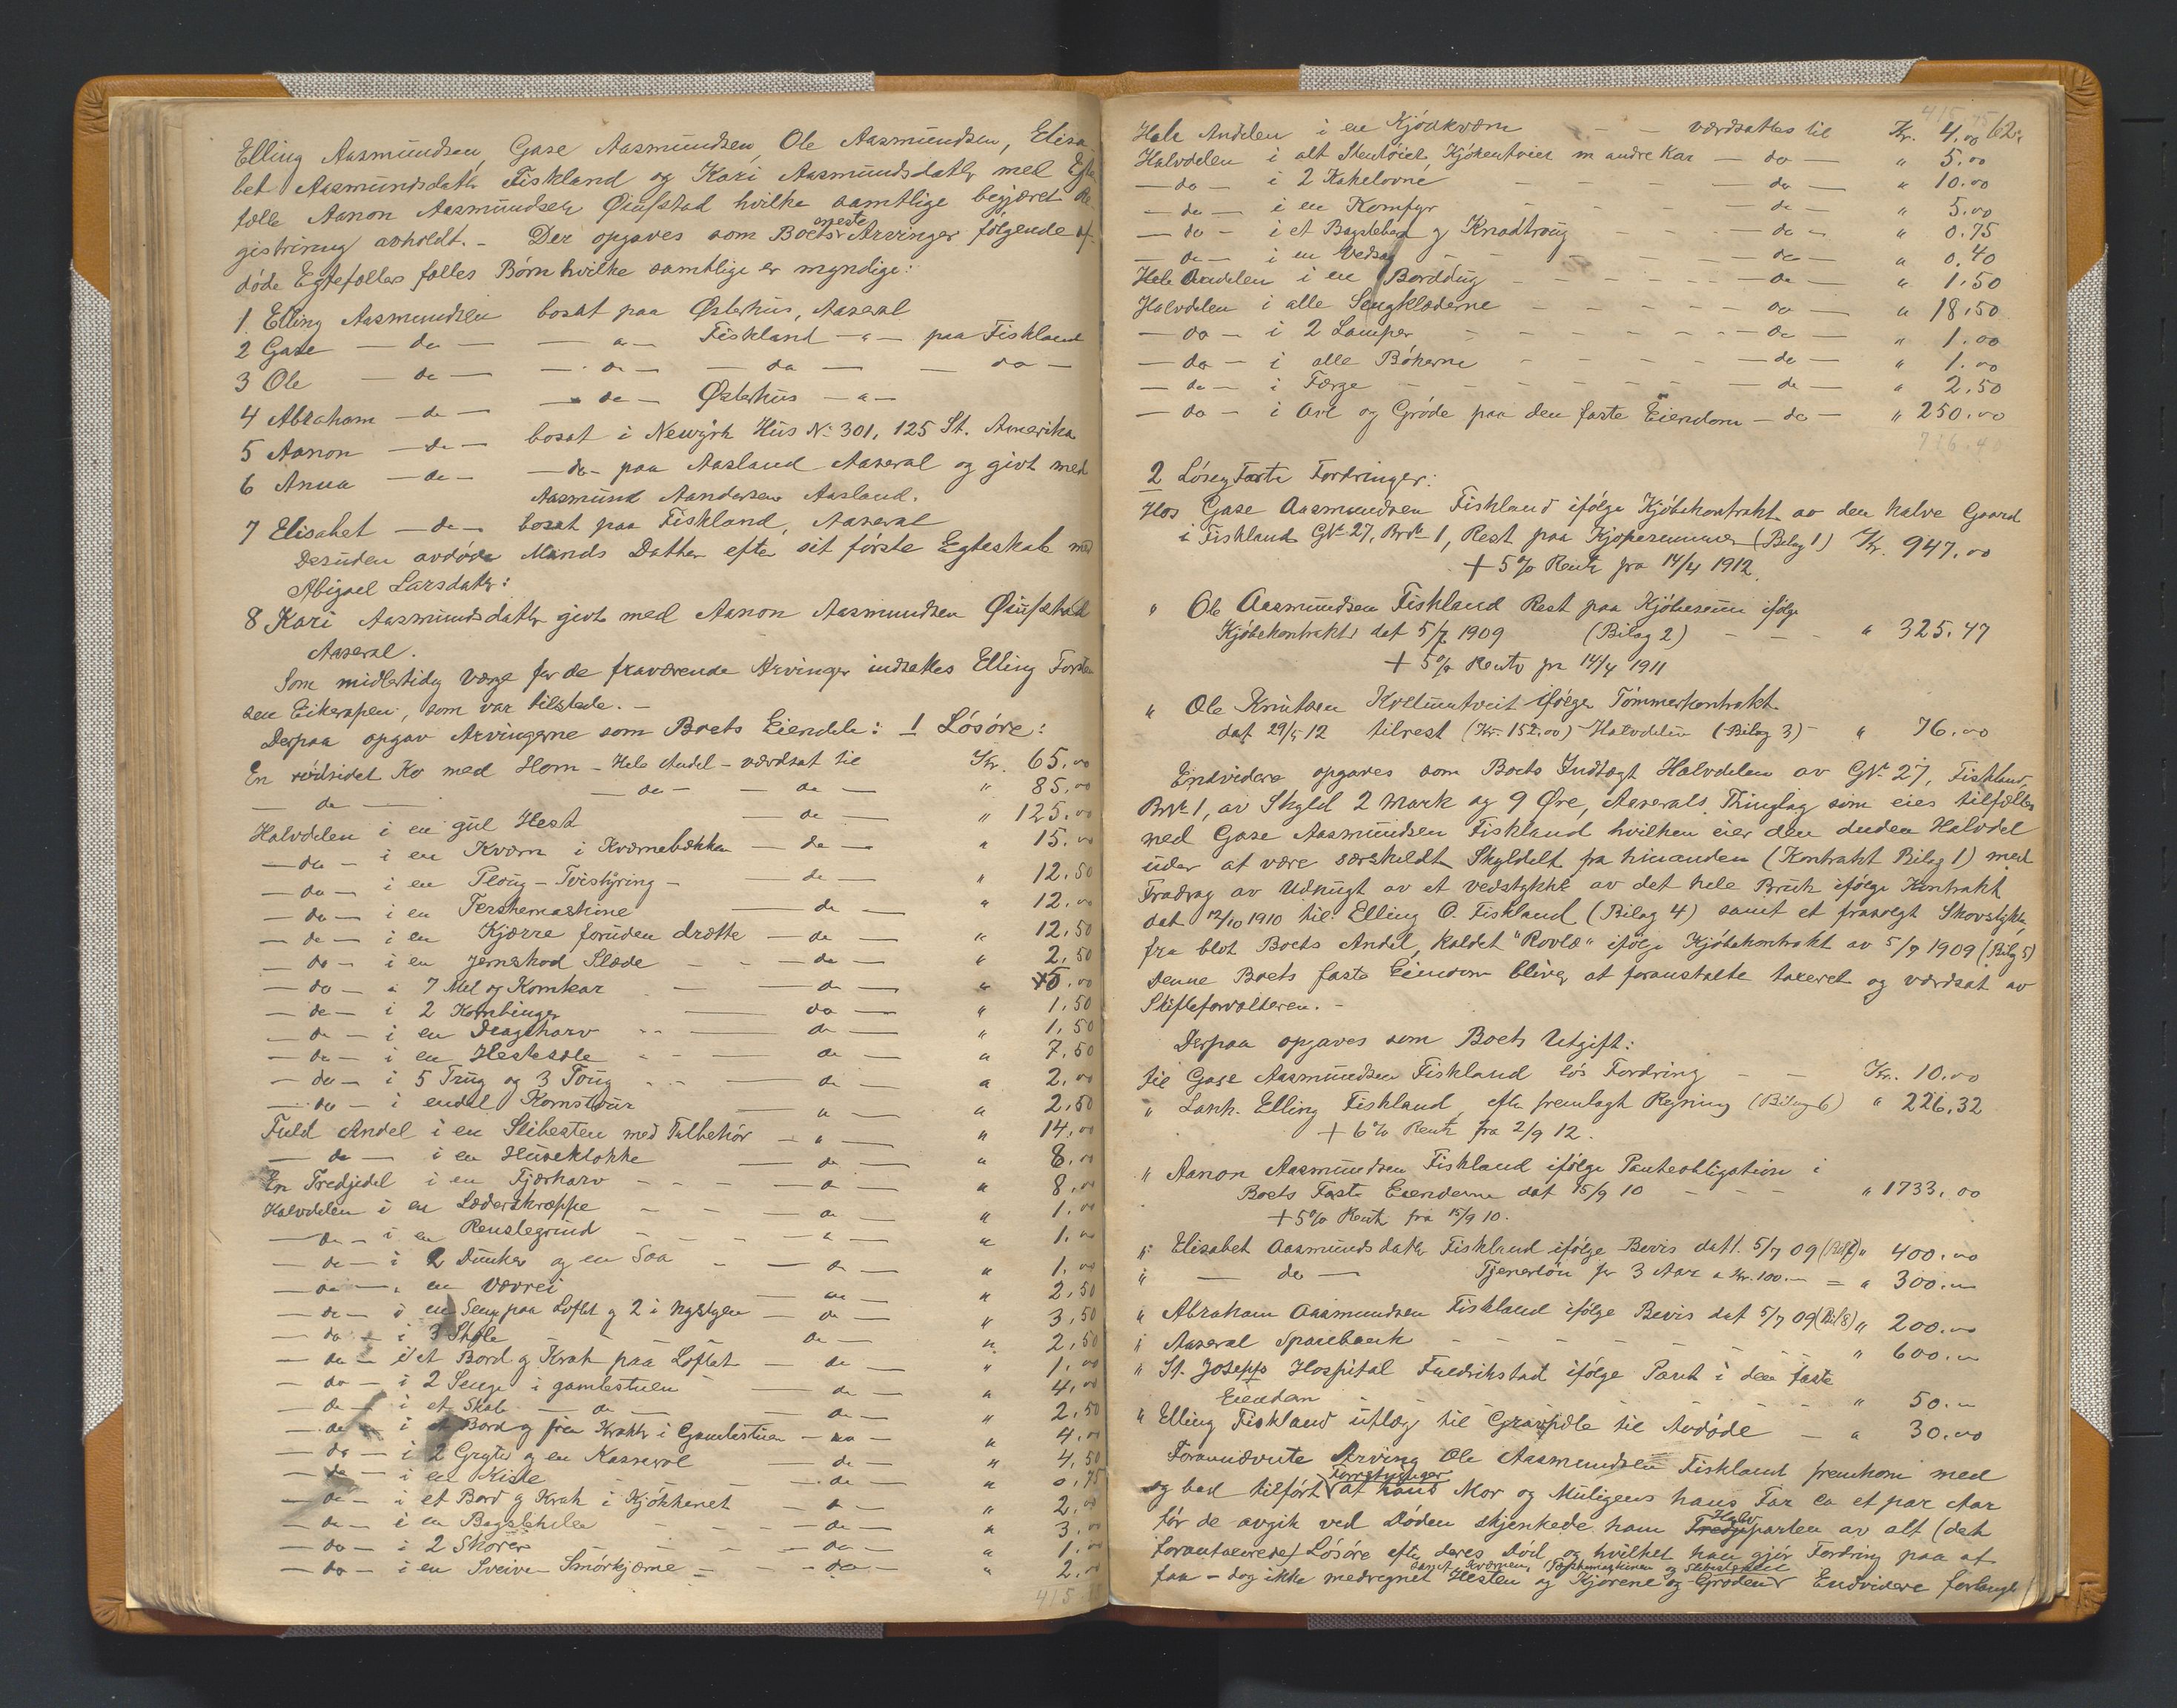 Elling Aasmundsen, Gase Aasmundsen, Ole Aasmundsen, Elisa-
bet Aasmundsdatr Fiskland og Kari Aasmundsdatr med Egte-
fælle Aanon Aasmundsen Øiufstad hvilke samtlige begjæret Re-
gistrering avholdt. - Der opgaves som Boets eneste Arvinger følgende av-
døde Egtefollers fælles Børn hvilke samtlige er myndige:
1. Elling Aasmundsen bosat paa Østerhus, Aaseral
2 Gase — do — — " — Fiskland — " — paa Fiskland
3 Ole — do — — " — — do — — do —
4 Abraham — do — — do — Østerhus — " —
5 Aanon — do — bosat i Newyrk Hus No 301, 125 St. Amerika
6 Anna — do — — do — paa Aasland Aaseral og givt med
Aasmund Aandersen Aasland.
7 Elisabet — do — bosat paa Fiskland, Aaseral
Desuden avdøde Mands Datter efter sit første Egteskab med
Abigael Larsdatr:
8 Kari Aasmundsdatr givt med Aanon Aasmundsen Øiufstad
Aaseral.
Som midlertidig Værge for de fraværende Arvinger indsættes Elling Torsten-
sen Eikerapen, som var tilstede. -
Derpaa opgav Arvingerne som Boets Eiendele: 1 Løsøre:
En rødsidet Ko med Horn - Hele Andel - værdsat til Kr. 65.00
— do — — do — — do — " 85.00
Halvdelen i en gul Hest — do — " 125.00
— do — i en Kværn i Kværnebækken — do — " 15.00
— do — i en Ploug - Tvistyring - — do — " 12.50
— do — i en Terskemaskine — do — " 12.00
— do — i en Kjærre foruden drætte — do — " 12.50
— do — i en Jernskod Slæde — do — " 2.50
— do — " 7 Mel og Kornkar — do — "
— do — i 2 Kornbinger — do — " 1.50
— do — i en Dragsharv — do — " 1.50
— do — i en Hestesæle — do — " 7.50
— do — i 5 Trug og 3 Toug — do — " 2.00
— do — i endel Kornstour — " — " 2.50
Fuld Andel i en Slibesten med Tilbehør — " — " 14.00
— do — i en Huseklokke — do — " 8.00
En Tredjedel i en Fjærharv — do — " 8.00
Halvdelen i en Læderskræppe — do — " 1.00
— do — i en Renslegrind — " — " 1.00
— do — i 2 Dunker og en Saa — do — " 1.00
— do — " en Vævrei — do — " 2.50
— do — i en Seng paa Loftet og 2 i Nystuen — do — " 3.50
— do — i 3 Stole — do — " 2.50
— do — i et Bord og Krak paa Loftet — do — " 1.00
— do — i 2 Senge i gamlestuen — do — " 4.00
— do — i et Skab — do — — do — " 2.50
— do — i et Bord og fire Krakker i Gamlestuen — do — " 4.00
— do — i 2 Gryter og en Kasserol — do — " 4.50
— do — i en Kiste — do — " 0.75
— do — i et Bord og Krak i Kjøkkenet — do — " 2.00
— do — i en Bagstehelle — do — " 3.00
— do — i 2 Skorer — do — " 1.00
— do — i en Sveive-Smørkjærne — do — " 2.00
Hele Andelen i en Kjødkværn — værdsattes til Kr. 4.00 62.
Halvdelen i alt Stentøiet, Kjøkentøiet m andre Kar — do — " 5.00
— do — i 2 Kakelovne — do — " 10.00
— do — i en Komfyr — do — " 5.00
— do — i et Bagstebord og Knadtroug — do — " 0.75
— do — i en Vedsag — do — " 0.40
Hele Andelen i en Borddug — do — " 1.50
Halvdelen i alle Sengklæderne — do — " 18.50
— do — i 2 Lamper — do — " 1.00
— do — i alle Bøkerne — do — " 1.00
— do — i Færge — do — " 2.50
— do — i Avl og Grøde paa den faste Eiendom — do — " 250.00
726.40
2 Løse og Faste Fordringer:
Hos Gase Aasmundsen Fiskland ifølge Kjøbekontrakt av den halve Gaard
i Fiskland GNo 27, BrNo 1, Rest paa Kjøpesummen (Bilag 1) Kr. 947.00
+ 5% Rente fra 14/4 1912.
" Ole Aasmundsen Fiskland Rest paa Kjøbesum ifølge
Kjøbekontrakt dat 5/7 1909 (Bilag 2) " 325.47
+ 5% Rente fra 14/4 1911
" Ole Knutsen ifølge Tømmerkontrakt
dat 29/5 12 tilrest (Kr. 152.00) - Halvdelen (Bilag 3) - " 76.00
Endvidere opgaves som Boets Indtægt Halvdelen av GNo 27, Fiskland,
BrNo 1, av Skyld 2 Mark og 9 Øre, Aaserals Thinglag som eies tilfælles
med Gase Aasmundsen Fiskland hvilken eier den anden Halvdel
uden at være særskildt Skyldelt fra hinanden (Kontrakt Bilag 1) med
Fradrag av Udhugt av et vedstykke av det hele Bruk ifølge Kontrakt
dat 12/10 1910 til Elling O. Fiskland (Bilag 4) samt et frasolgt Skovstykke
fra blot Boets Andel, kaldet "Rovlæ" ifølge Kjøbekontrakt av 5/7 1909 (Bilag 5)
Denne Boets faste Eiendom bliver at foranstalte taxeret og værdsat av
Skifteforvalteren. -
Derpaa opgaves som Boets Utgift:
til Gase Aasmundsen Fiskland løs Fordring — Kr. 10.00
" Lank. Elling Fiskland, efter fremlagt Regning (Bilag 6) " 226.32
+ 6% Rente fra 2/9 12.
" Aanon Aasmundsen Fiskland ifølge Panteobligation i
Boets Faste Eiendomme dat 15/9 10 " 1733.00
+ 5% Rente fra 15/9 10.
" Elisabet Aasmundsdatr Fiskland ifølge Bevis dat. 5/7 09 (Bil 7) " 400.00
" — do — Tjenerløn for 3 Aar a Kr. 100.— = " 300.00
" Abraham Aasmundsen Fiskland ifølge Bevis dat 5/7 09 (Bil 8) " 200.00
" Aaseral Sparebank — " 600.00
" St. Josephs Hospital Fredrikstad ifølge Pant i den faste
Eiendom " 50.00
" Elling Fiskland utlæg til Gravøl til Avdøde — " 30.00
Forannævnte Arving Ole Aasmundsen Fiskland fremkom med
og bad tilført Forretninger at hans Mor og Muligens hans Far ca et par Aar
før de avgik ved Døden skjenkede ham Halvparten av alt (det
Løsøre efter deres Død og hvilket han gjør Fordring paa at
faa - dog ikke medregnet Hesten samt Kværnen, Terskemaskinen og Slibestenen og Kjørene og Grøden Endvidere forlangte